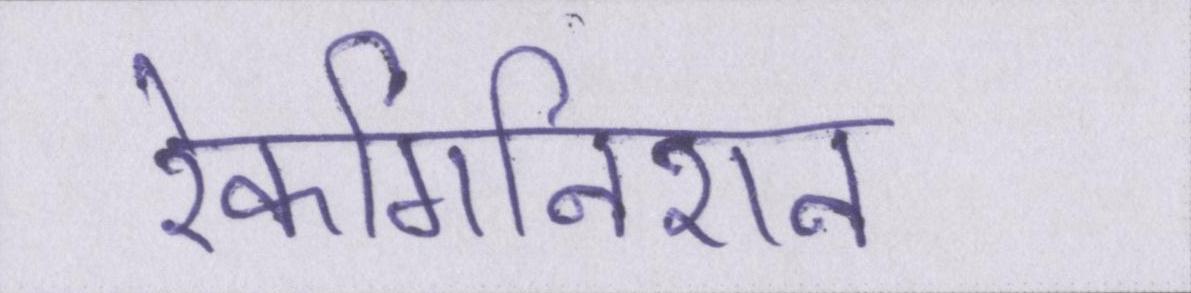 रेकगिनिशन